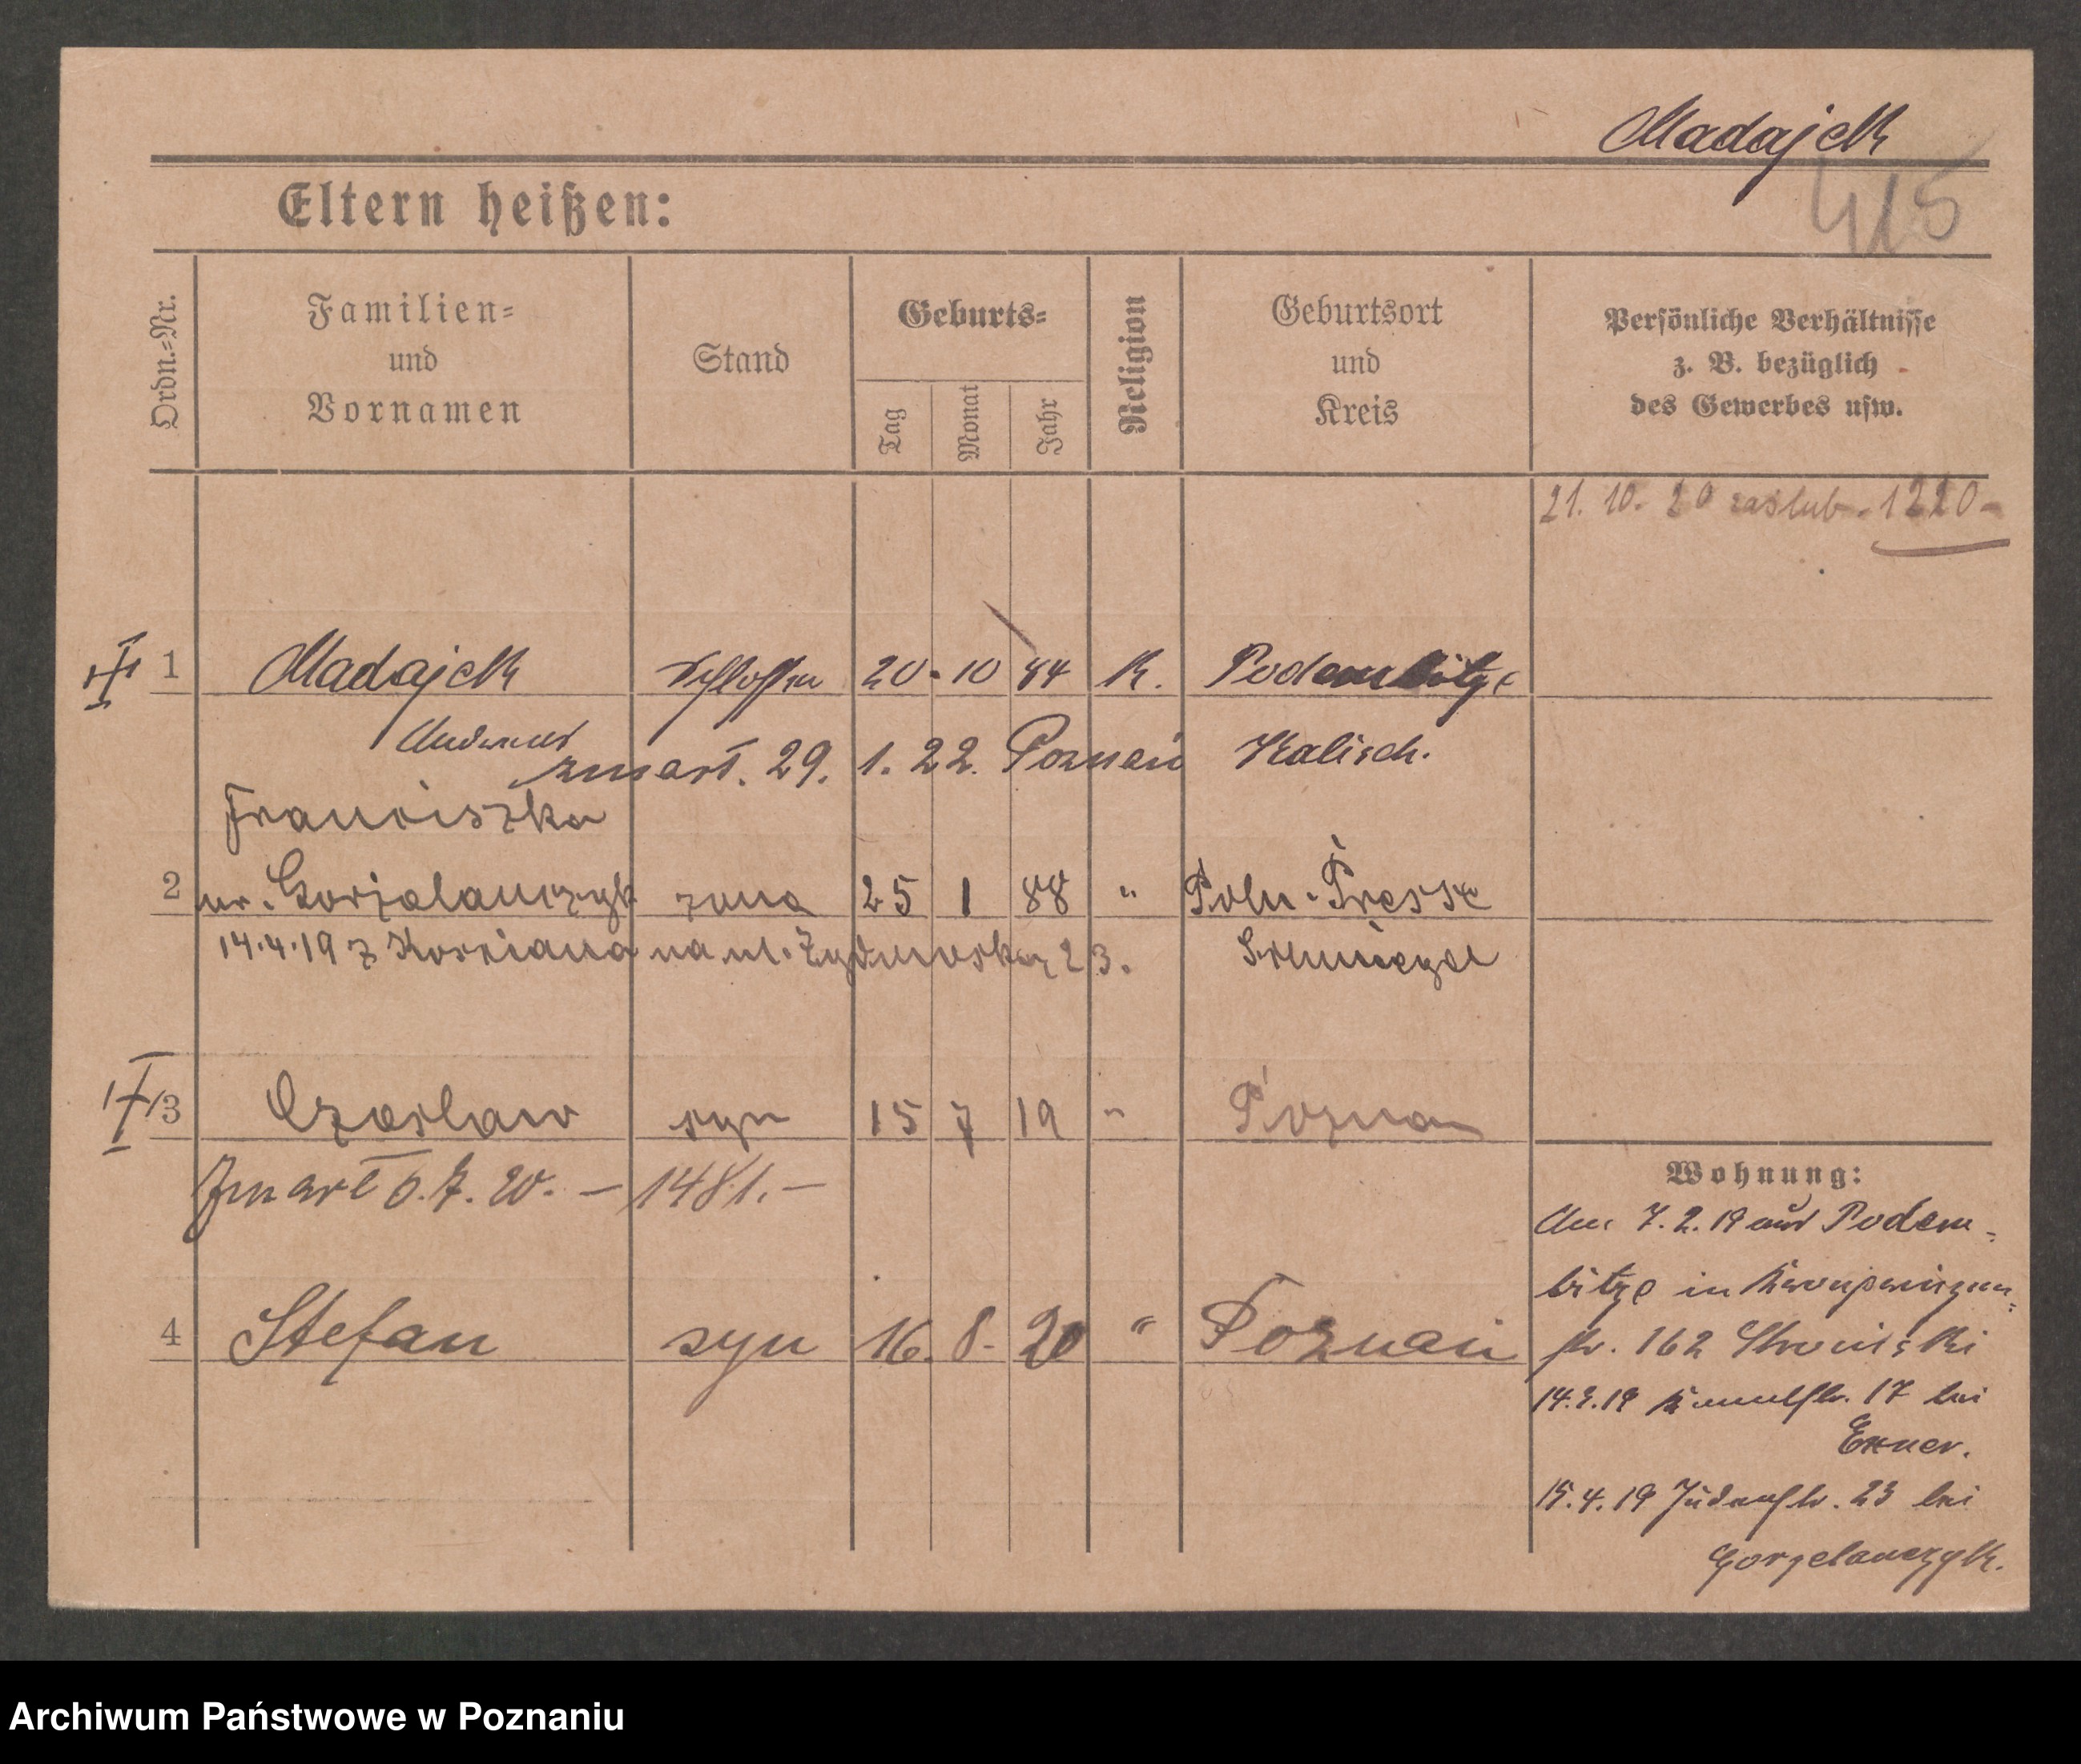 Madajck
415
Eltern heißen:
Ordn.=Nr.
Familien=
und
Vornamen
Stand
Geburts=
Tag
Monat
Jahr
Religion
Geburtsort
und
Kreis
Persönliche Verhältnisse
z. B. bezüglich
des Gewerbes usw.
21. 10. 20 zaślub. 1220 -
1 Madajck Schlosser 20. 10 84 K. Podembitze
Andreas Kalisch.
zmart. 29. 1. 22. Poznań
Franciszka
2 ur. Gorzelanczyk żona 25 1 88 " Poln. Presse
14.4.19 z Kościana na ul. Żydowską 23. Schmiegel
3 Czesław syn 15 7 19 " Poznan
Zmarł 6.7.20. - 1481. -
4 Stefan syn 16. 8. 20 " Poznań
Wohnung:
7.2.19 aus Podem=
bitze in Kronprinzen=
str. 162
14.3.19 17 bei
Exner.
15.4.19 Judenstr. 23 bei
Gorzelanczyk.
Archiwum Państwowe w Poznaniu